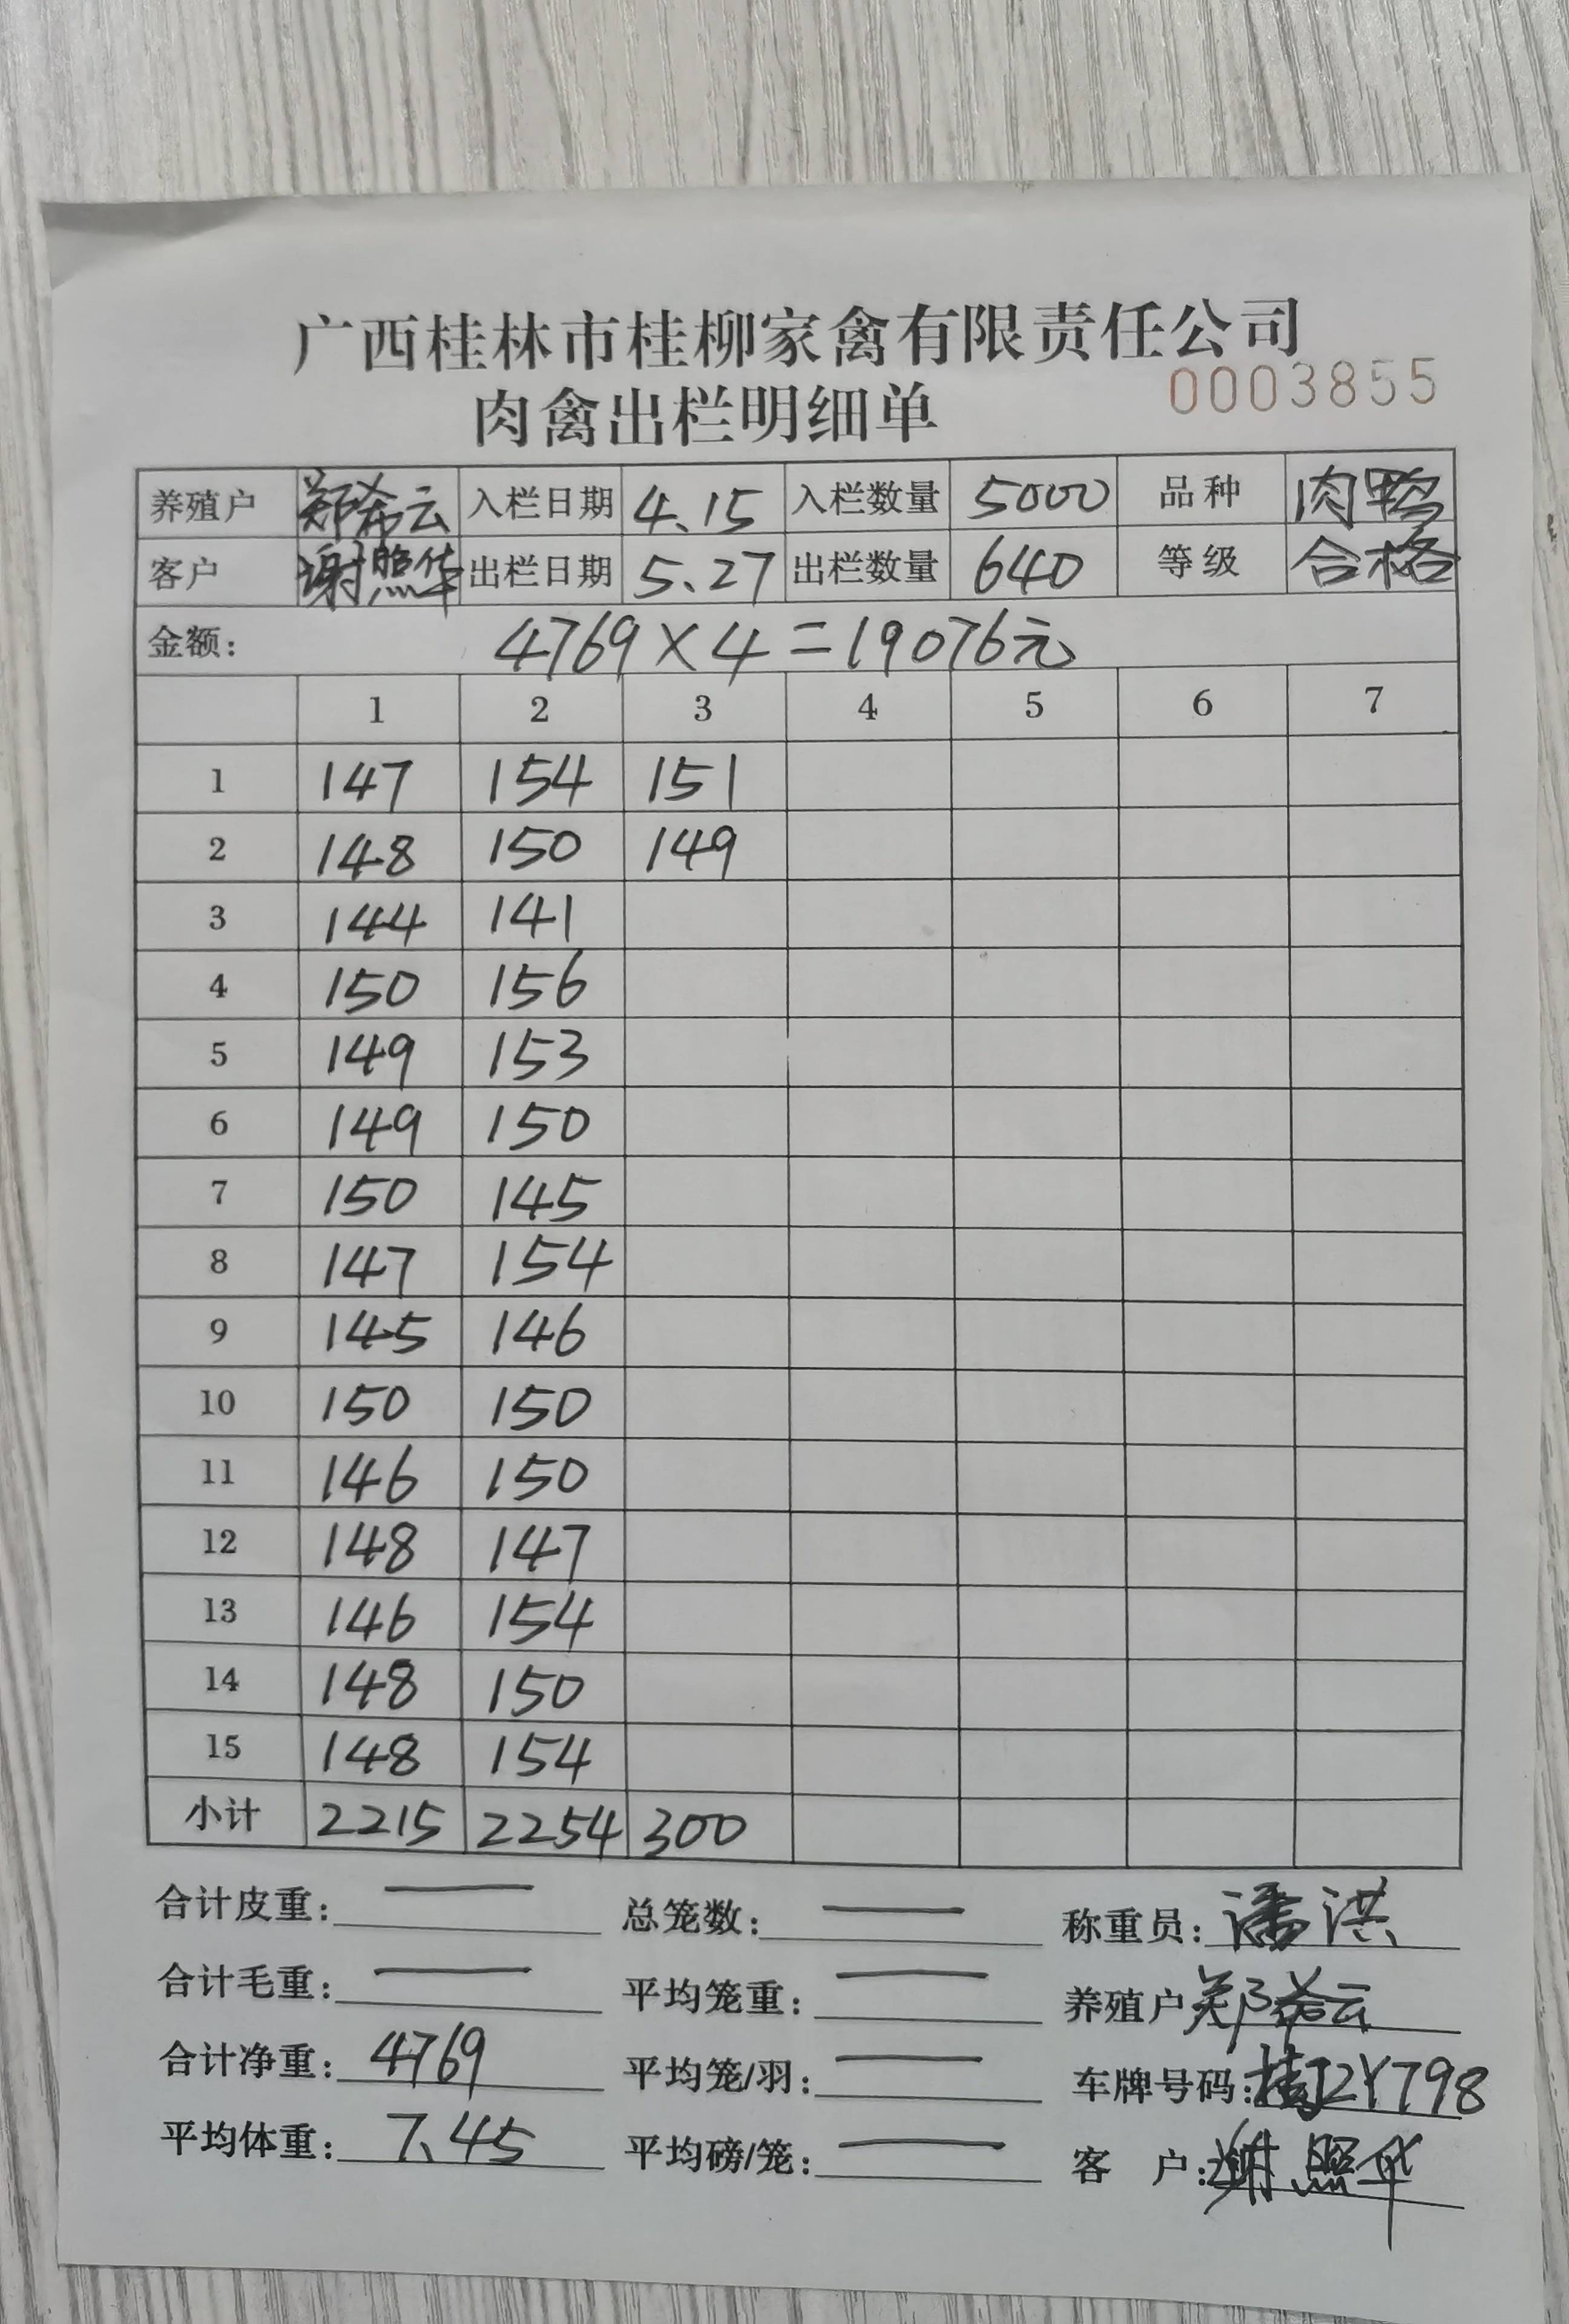 广西桂林市桂柳家禽有限责任公司
0003855
肉禽出栏明细单
养殖户 郑希云 入栏日期 4.15 入栏数量 5000 品种 肉鸭
客户 谢照华 出栏日期 5.27 出栏数量 640 等级 合格
金额： 4769×4=19076元
1 2 3 4 5 6 7
1 147 154 151
2 148 150 149
3 144 141
4 150 156
5 149 153
6 149 150
7 150 145
8 147 154
9 145 146
10 150 150
11 146 150
12 148 147
13 146 154
14 148 150
15 148 154
小计 2215 2254 300
合计皮重： — 总笼数： — 称重员：潘洪
合计毛重： — 平均笼重： — 养殖户 郑希云
合计净重： 4769 平均笼/羽： — 车牌号码：桂J2Y798
平均体重： 7.45 平均磅/笼： — 客户：谢照华